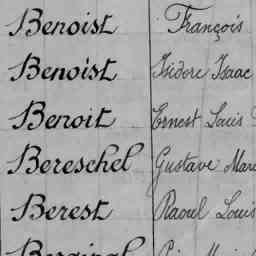 Benoist François
Benoist Isidore Isaac
Benoit Ernest Louis
Bereschel Gustave
Berest Raoul Louis